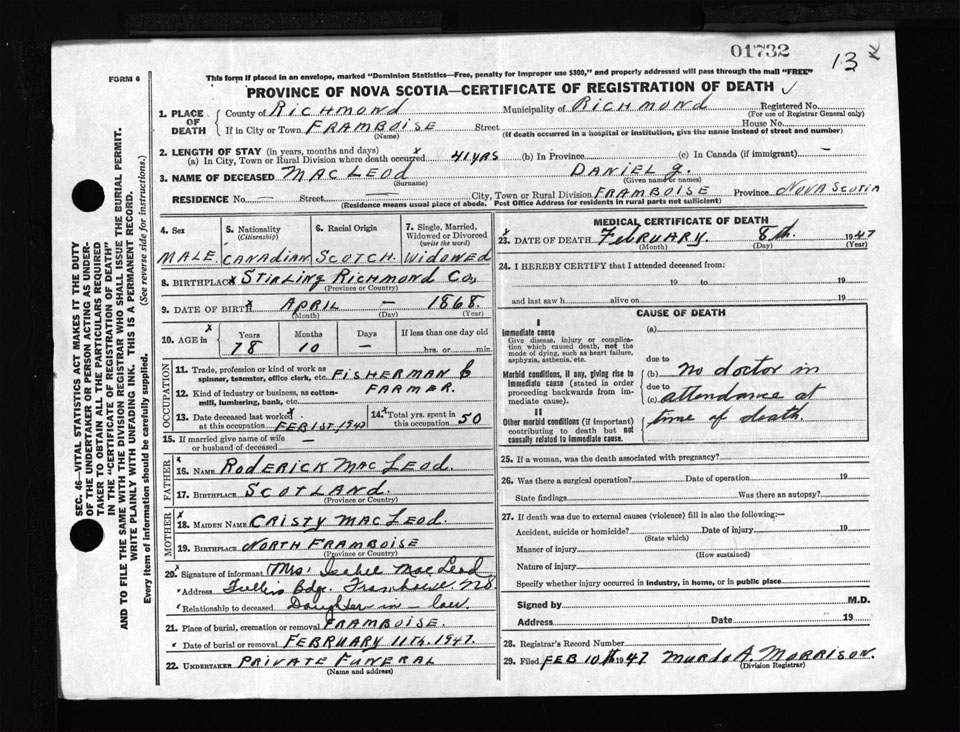 01732
13
FORM 6
This form if placed in an envelope, marked "Dominion Statistics—Free, penalty for improper use $300," and properly addressed will pass through the mail "FREE"
PROVINCE OF NOVA SCOTIA—CERTIFICATE OF REGISTRATION OF DEATH
1. PLACE OF DEATH County of RICHMOND Municipality of RICHMOND Registered No.
(For use of Registrar General only)
If in City or Town FRAMBOISE Street House No.
(Name) (If death occurred in a hospital or institution, give the name instead of street and number)
2. LENGTH OF STAY (in years, months and days)
(a) In City, Town or Rural Division where death occurred x 41 YRS (b) In Province (c) In Canada (if immigrant) —
3. NAME OF DECEASED MAC LEOD DANIEL G.
(Surname) (Given name or names)
RESIDENCE No. — Street — City, Town or Rural Division FRAMBOISE Province NOVA SCOTIA
(Residence means usual place of abode. Post Office Address for residents in rural parts not sufficient)
4. Sex 5. Nationality (Citizenship) 6. Racial Origin 7. Single, Married, Widowed or Divorced (write the word)
MALE. CANADIAN SCOTCH. WIDOWED
8. BIRTHPLACE x STIRLING RICHMOND CO,
(Province or Country)
9. DATE OF BIRTH x APRIL — 1868.
(Month) (Day) (Year)
10. AGE in x Years Months Days If less than one day old
78 10 — hrs. or min.
OCCUPATION
11. Trade, profession or kind of work as spinner, teamster, office clerk, etc. FISHERMAN &
12. Kind of industry or business, as cotton-mill, lumbering, bank, etc. FARMER.
13. Date deceased last worked at this occupation x FEB 1ST. 1947 14. x Total yrs. spent in this occupation 50
15. If married give name of wife or husband of deceased —
FATHER
16. NAME RODERICK MAC LEOD.
17. BIRTHPLACE SCOTLAND.
(Province or Country)
MOTHER
18. MAIDEN NAME CRISTY MAC LEOD.
19. BIRTHPLACE NORTH FRAMBOISE
(Province or Country)
20. x Signature of informant Mrs. Isabel MacLeod
Address Framboise N.S.
Relationship to deceased Daughter-in-law.
21. Place of burial, cremation or removal FRAMBOISE.
Date of burial or removal FEBRUARY 11th. 1947.
22. UNDERTAKER PRIVATE FUNERAL
(Name and address)
MEDICAL CERTIFICATE OF DEATH
23. DATE OF DEATH FEBRUARY. 8th. 1947
(Month) (Day) (Year)
24. I HEREBY CERTIFY that I attended deceased from:
19 to 19
and last saw h alive on 19
CAUSE OF DEATH
I
Immediate cause (a)
Give disease, injury or complication which caused death, not the mode of dying, such as heart failure, asphyxia, asthenia, etc.
due to
Morbid conditions, if any, giving rise to immediate cause (stated in order proceeding backwards from immediate cause). (b) No doctor in
due to
(c) attendance at
II
Other morbid conditions (if important) contributing to death but not causally related to immediate cause. time of death.
25. If a woman, was the death associated with pregnancy?
26. Was there a surgical operation? Date of operation 19
State findings Was there an autopsy?
27. If death was due to external causes (violence) fill in also the following:—
Accident, suicide or homicide? Date of injury 19
(State which)
Manner of injury
(How sustained)
Nature of injury
Specify whether injury occurred in industry, in home, or in public place
Signed by M.D.
Address Date 19
28. Registrar's Record Number
29. Filed FEB 10th 1947 Murdo A. Morrison.
(Division Registrar)
SEC. 46—VITAL STATISTICS ACT MAKES IT THE DUTY
OF THE UNDERTAKER OR PERSON ACTING AS UNDER-
TAKER TO OBTAIN ALL THE PARTICULARS REQUIRED
IN THE "CERTIFICATE OF REGISTRATION OF DEATH"
AND TO FILE THE SAME WITH THE DIVISION REGISTRAR WHO SHALL ISSUE THE BURIAL PERMIT.
WRITE PLAINLY WITH UNFADING INK. THIS IS A PERMANENT RECORD.
Every item of information should be carefully supplied. (See reverse side for instructions.)